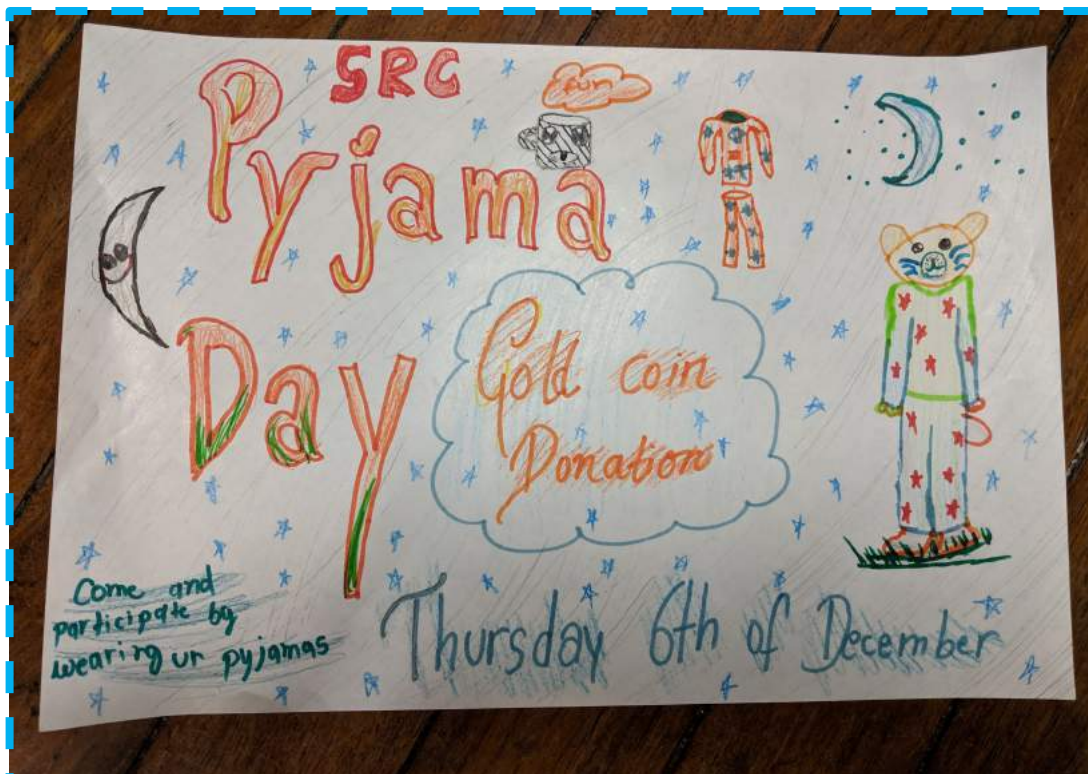 SRC
fun
Pyjama
Day
Gold coin
Donation
Come and
participate by
wearing ur pyjamas
Thursday 6th of December